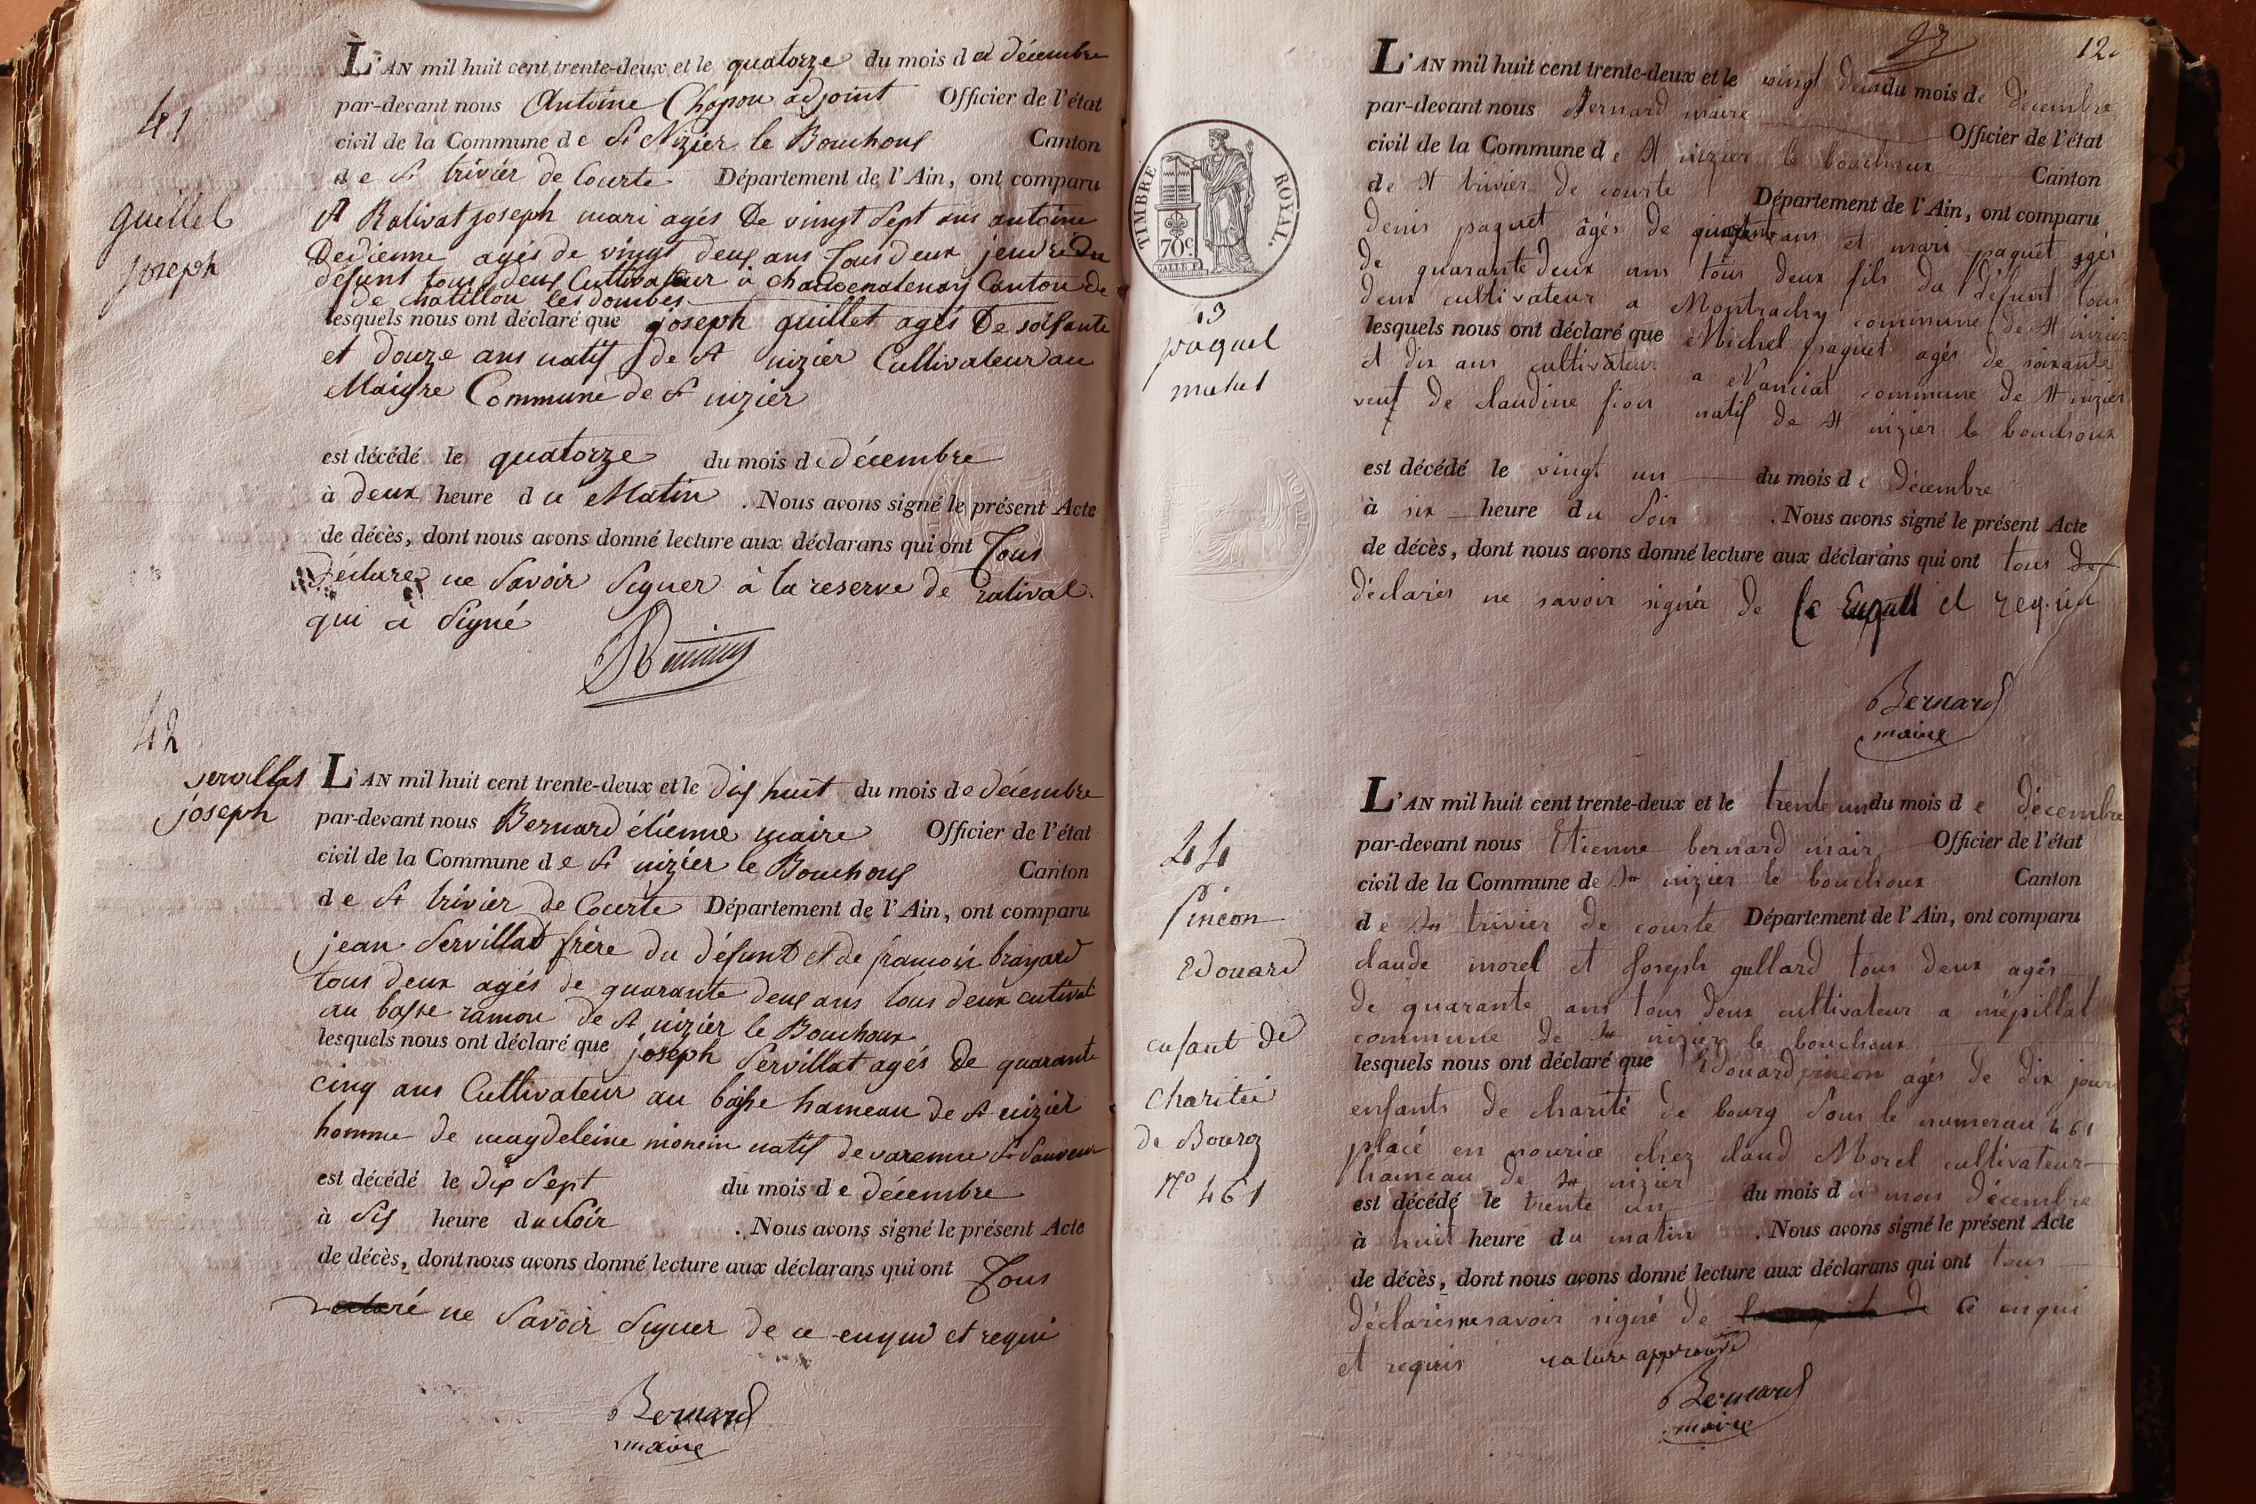 41
guillet
joseph
L'AN mil huit cent trente-deux et le quatorze du mois de décembre
par-devant nous Antoine Chapon adjoint Officier de l'état
civil de la Commune de St Nizier le Bouchoux Canton
de St trivier de Courte Département de l'Ain, ont comparu
Rativat joseph mari agés De vingt Sept ans antoine
Dedienne agés de vingt deux ans Tous deux
défunt tous deux Cultivateur à Canton de
de chatillon les dombes
lesquels nous ont déclaré que joseph guillet agés De soisante
et douze ans natif de St nizier Cultivateur au
Maigre Commune de St nizier
est décédé le quatorze du mois de décembre
à deux heure du Matin . Nous avons signé le présent Acte
de décès, dont nous avons donné lecture aux déclarans qui ont Tous
Déclarer ne Savoir Signer à la reserve de rativat
qui a Signé
42
servillat
joseph
L'AN mil huit cent trente-deux et le dix huit du mois de décembre
par-devant nous Bernard étienne maire Officier de l'état
civil de la Commune de St nizier le Bouchoux Canton
de St trivier de Courte Département de l'Ain, ont comparu
jean Servillat frère du défunt et de françois brayard
tous deux agés de quarante deux ans tous deux cultivat
au basse ramou de St nizier le Bouchoux
lesquels nous ont déclaré que joseph Servillat agés De quarante
cinq ans Cultivateur au basse hameau de St nizier
homme de magdeleine natif de varenne St Sauveur
est décédé le dix Sept du mois de décembre
à Six heure du Soir . Nous avons signé le présent Acte
de décès, dont nous avons donné lecture aux déclarans qui ont Tous
ne Savoir Signer de ce enquis et requi
Bernard
maire
93
12
TIMBRE ROYAL.
70c.
43
paquet
michel
L'AN mil huit cent trente-deux et le vingt deux du mois de décembre
par-devant nous Bernard maire Officier de l'état
civil de la Commune de St nizier le bouchoux Canton
de St trivier de courte Département de l'Ain, ont comparu
denis paquet âgés de ans et mari paquet agés
de quarante deux ans tous deux fils du défunt tous
deux cultivateur a Montrachy commune de St nizier
lesquels nous ont déclaré que Michel paquet agés de soixante
et dix ans cultivateur a Vanciat commune de St nizier
veuf de claudine natif de St nizier le bouchoux
est décédé le vingt un du mois de décembre
à six heure du Soir . Nous avons signé le présent Acte
de décès, dont nous avons donné lecture aux déclarans qui ont tous
déclarés ne savoir signér de ce et requis
Bernard
maire
44
Pincon
Edouard
enfant de
charitéi
de Bourg
No 461
L'AN mil huit cent trente-deux et le trente un du mois de décembre
par-devant nous Etienne bernard mair Officier de l'état
civil de la Commune de St nizier le bouchoux Canton
de St trivier de courte Département de l'Ain, ont comparu
claude morel et Joseph gullard tous deux agés
de quarante ans tous deux cultivateur a mépillat
commune de St nizier le bouchoux
lesquels nous ont déclaré que Edouard pincon agés de dix jours
enfants de charité de bourg Sous le numerau 461
placé en nourice chez claud Morel cultivateur
hameau de St nizier
est décédé le trente un du mois du mois décembre
à huit heure du matin . Nous avons signé le présent Acte
de décès, dont nous avons donné lecture aux déclarans qui ont tous
déclarés ne savoir signé de ce enqui
et requis rature approuvé
Bernard
maire